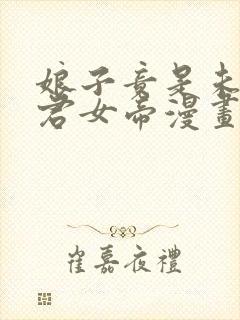 娘子竟是未
君女帝漫畫
崔嘉夜禮